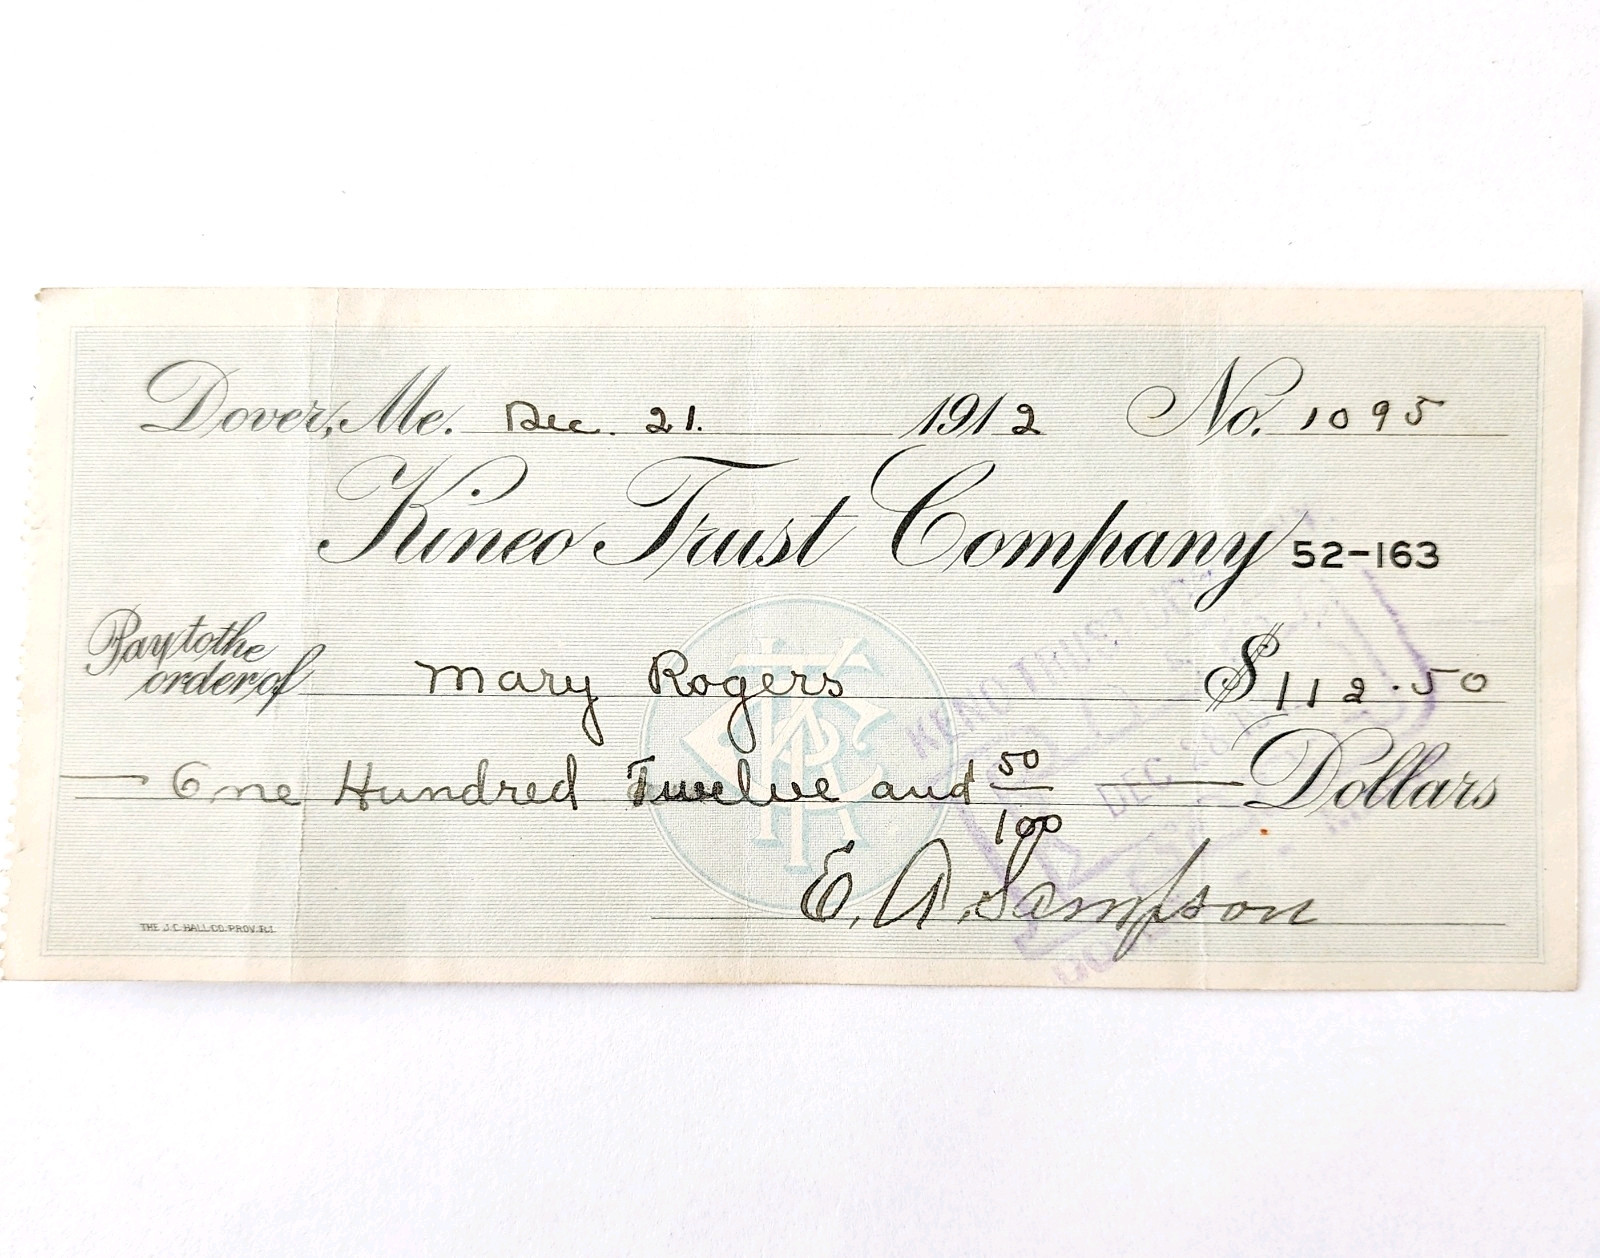 Dover, Me. Dec. 21. 1912 No. 1095
Kineo Trust Company 52-163
Pay to the order of Mary Rogers $112.50
One Hundred Twelve and 50/100 Dollars
DEC 28
E. A. Sampson
THE J.C. HALL CO. PROV. R.I.